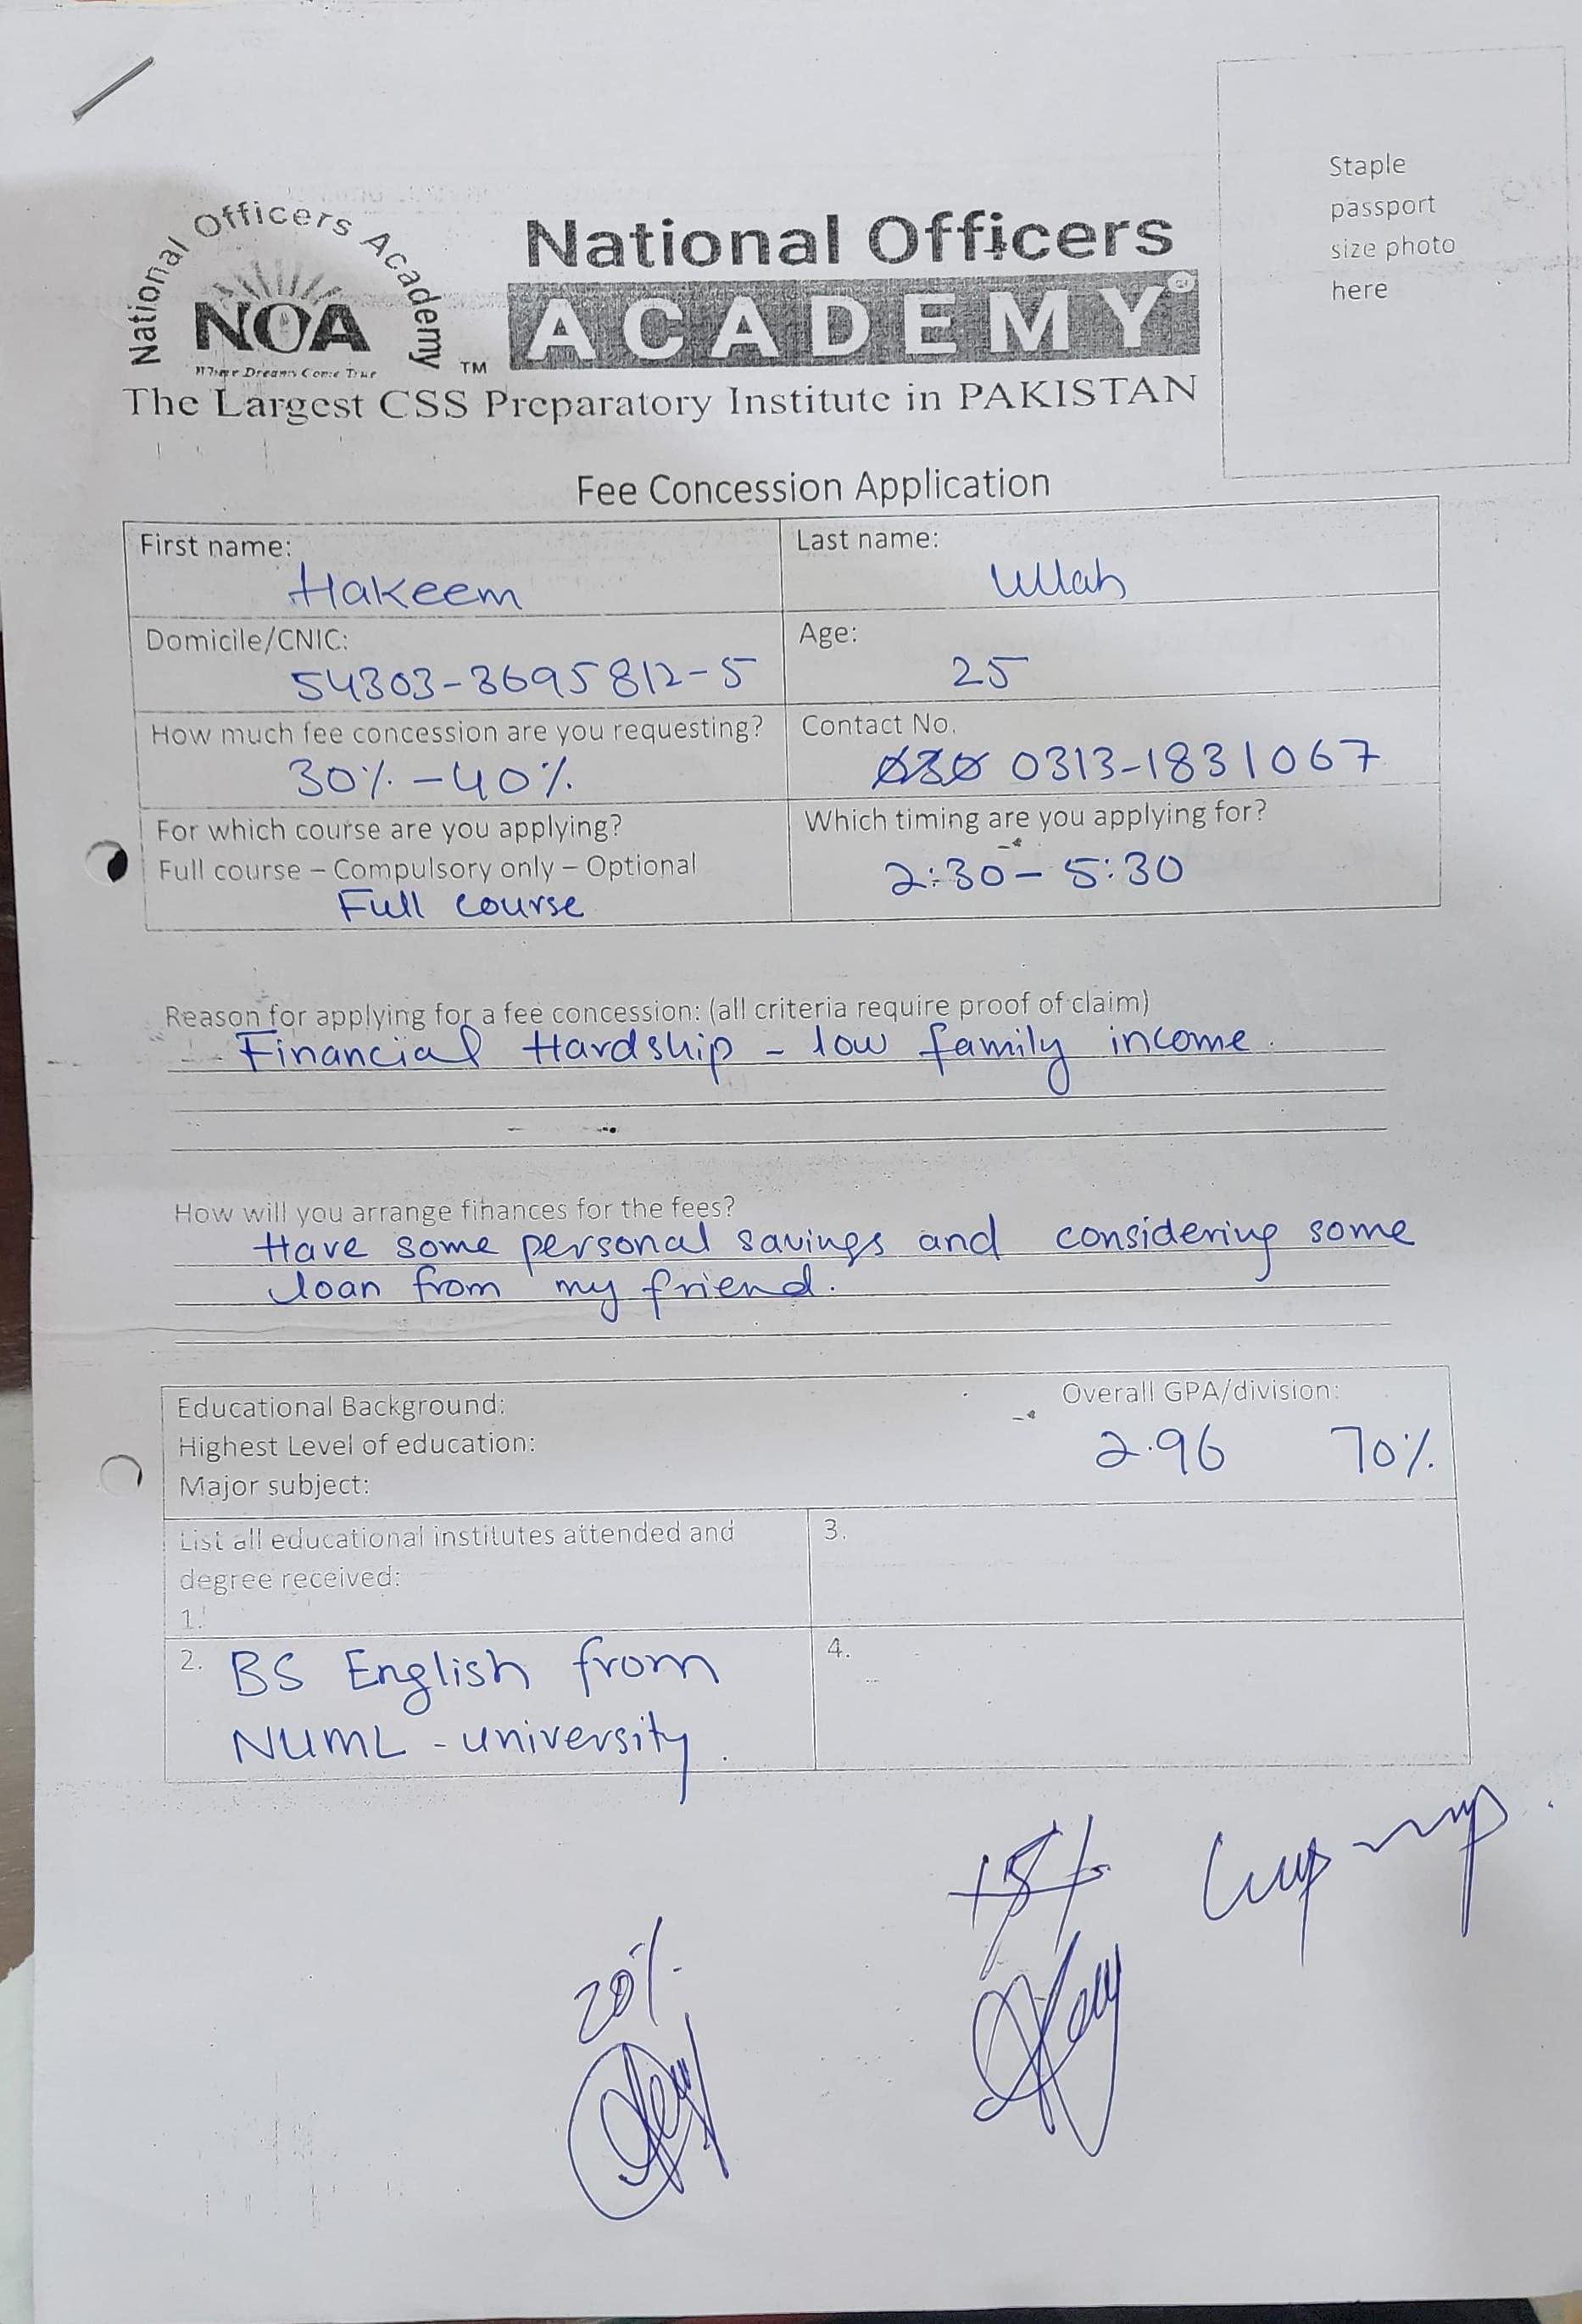 Staple
passport
size photo
here
National Officers Academy
NOA
Where Dreams Come True
TM
National Officers
ACADEMY
The Largest CSS Preparatory Institute in PAKISTAN
Fee Concession Application
First name: Hakeem
Last name: Ullah
Domicile/CNIC: 54303-3695812-5
Age: 25
How much fee concession are you requesting?
30% - 40%
Contact No.
0313-1831067
For which course are you applying?
Full course – Compulsory only – Optional
Full course
Which timing are you applying for?
2:30 - 5:30
Reason for applying for a fee concession: (all criteria require proof of claim)
Financial Hardship - low family income.
How will you arrange finances for the fees?
Have some personal savings and considering some
loan from my friend.
Educational Background:
Highest Level of education:
Major subject:
Overall GPA/division:
2.96 70%
List all educational institutes attended and
degree received:
1.
2. BS English from
NUML - university.
3.
4.
20%